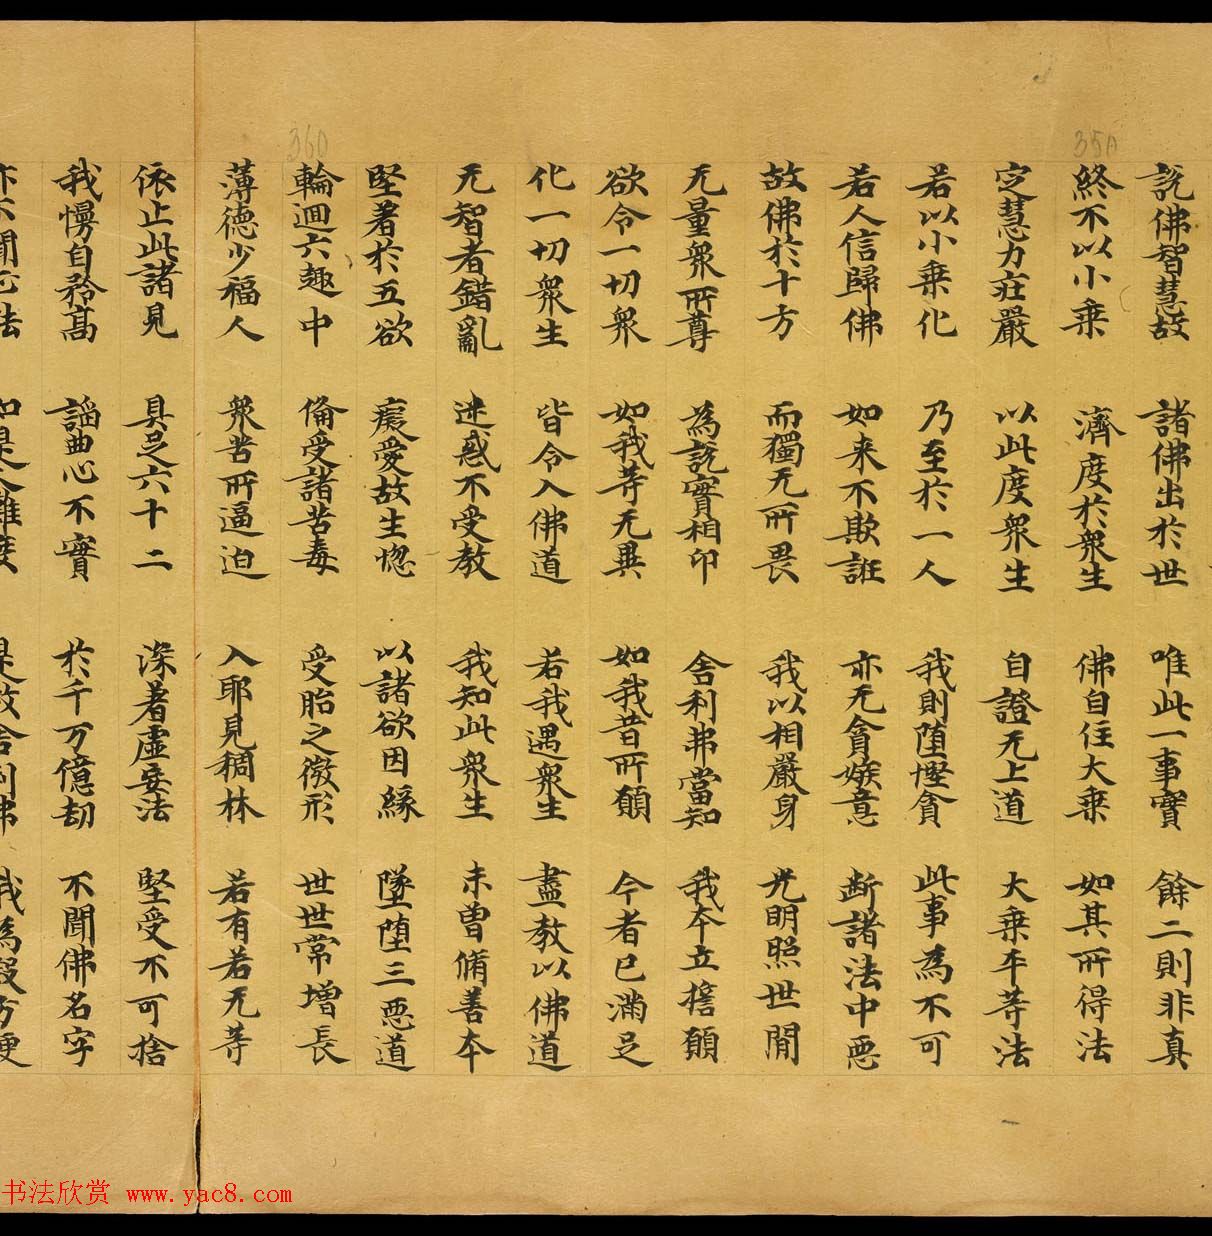 說佛智慧故 諸佛出於世 唯此一事實 餘二則非真
終不以小乗 濟度於衆生 佛自住大乗 如其所得法
定慧力莊嚴 以此度衆生 自證无上道 大乗平等法
若以小乗化 乃至於一人 我則堕慳貪 此事為不可
若人信歸佛 如来不欺誑 亦无貪嫉意 断諸法中惡
故佛於十方 而獨无所畏 我以相嚴身 光明照世閒
无量衆所尊 為說實相印 舎利弗當知 我夲立擔願
欲令一切衆 如我等无異 如我昔所願 今者已滿足
化一切衆生 皆令入佛道 若我遇衆生 盡教以佛道
无智者錯亂 迷惑不受教 我知此衆生 未曽脩善夲
堅著於五欲 癡愛故生惚 以諸欲因緣 墜堕三惡道
輪迴六趣中 偹受諸苦毒 受胎之微形 世世常增長
薄德少福人 衆苦所逼迫 入耶見稠林 若有若无等
依止此諸見 具足六十二 深著虛妄法 堅受不可捨
我慢自矜髙 謟曲心不實 於千万億劫 不聞佛名字
亦不聞正法 如是人難度 是故舎利弗 我為設方便
35A
360
书法欣赏 www.yac8.com